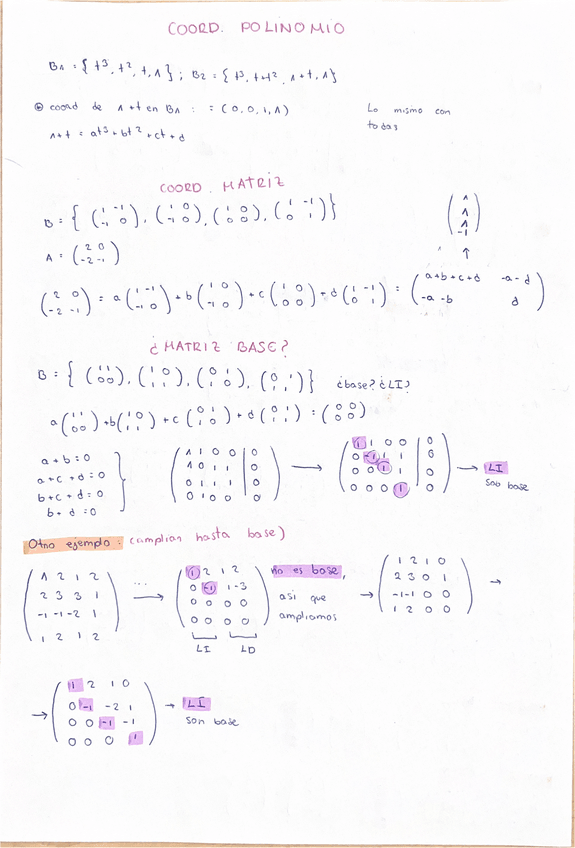 COORD. POLINOMIO
B1 = { t³, t², t, 1 } ; B2 = { t³, t+t², 1+t, 1 }
coord de 1+t en B1 : = (0, 0, 1, 1) Lo mismo con
1+t = at³ + bt² + ct + d todas
COORD. MATRIZ
B = { (1 -1 / -1 0), (1 0 / -1 0), (1 0 / 0 0), (1 -1 / 0 1) } (1 / 1 / 1 / -1)
A = (2 0 / -2 -1) ↑
(2 0 / -2 -1) = a (1 -1 / -1 0) + b (1 0 / -1 0) + c (1 0 / 0 0) + d (1 -1 / 0 1) = (a+b+c+d -a-d / -a-b d)
¿MATRIZ BASE?
B = { (1 1 / 0 0), (1 0 / 1 1), (0 1 / 1 0), (0 1 / 1 1) } ¿base? ¿LI?
a (1 1 / 0 0) + b (1 0 / 1 1) + c (0 1 / 1 0) + d (0 1 / 1 1) = (0 0 / 0 0)
a + b = 0
a + c + d = 0
b + c + d = 0
b + d = 0
(1 1 0 0 | 0 / 1 0 1 1 | 0 / 0 1 1 1 | 0 / 0 1 0 0 | 0) → (1 1 0 0 | 0 / 0 -1 1 1 | 0 / 0 0 1 1 | 0 / 0 0 0 1 | 0) → LI
son base
Otro ejemplo: (amplían hasta base)
(1 2 1 2 / 2 3 3 1 / -1 -1 -2 1 / 1 2 1 2) ... → (1 2 1 2 / 0 -1 1 -3 / 0 0 0 0 / 0 0 0 0) no es base,
así que
ampliamos
LI LD
→ (1 2 1 0 / 2 3 0 1 / -1 -1 0 0 / 1 2 0 0) →
→ (1 2 1 0 / 0 -1 -2 1 / 0 0 -1 -1 / 0 0 0 1) → LI
son base